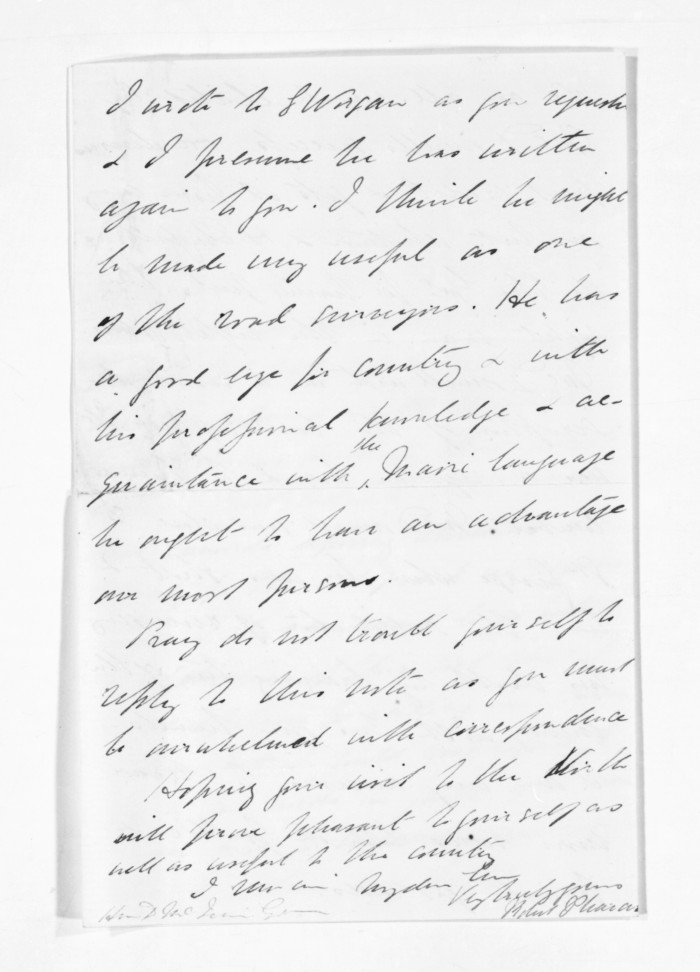 I wrote to G Worgan as you request
& I presume he has written
again to you. I think he might
be made very useful as one
of the road surveyors. He has
a good eye for country & with
his professional knowledge & ac-
quaintance with the Maori language
he ought to have an advantage
over most persons.
Pray do not trouble yourself to
reply to this note as you must
be overwhelmed with correspondence
Hoping your visit to the North
will prove pleasant to yourself as
well as useful to the country
I remain my dear Sir
Very truly yours
Robert Pharazyn
Hon D McLean